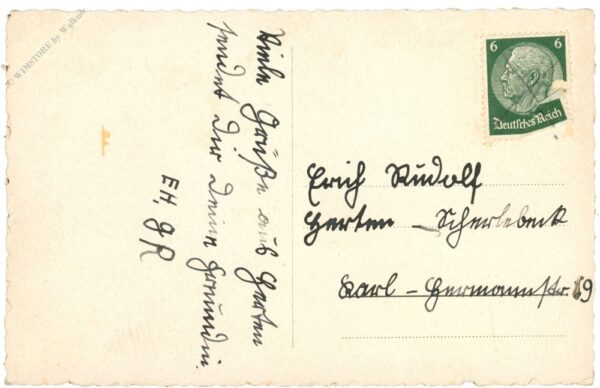 WIMSTORE by Walknit
Viele Grüße aus Herten
sendet dir deine Freundin
EH, g R
6 6
Deutsches Reich
Erich Rudolf
Herten - Scherlebeck
Karl-Hermannstr. 69